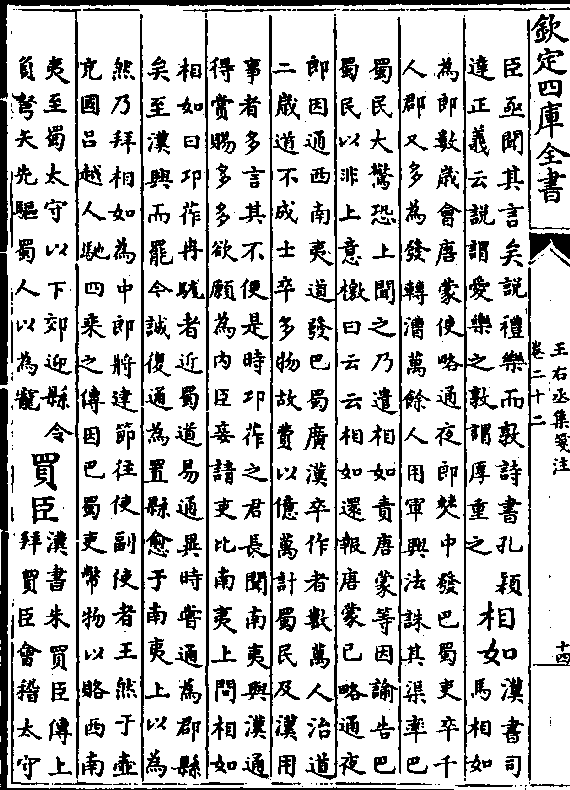 欽定四庫全書
王右丞集箋注
卷二十二
十四
臣亟聞其言矣說禮樂而敦詩書孔穎
達正義云說謂愛樂之敦謂厚重之
相如
漢書司
馬相如
為郎數歳會唐蒙使略通夜郎僰中發巴蜀吏卒千
人郡又多為發轉漕萬餘人用軍興法誅其渠率巴
蜀民大驚恐上聞之乃遣相如責唐蒙等因諭告巴
蜀民以非上意檄曰云云相如還報唐蒙已略通夜
郎因通西南夷道發巴蜀廣漢卒作者數萬人治道
二歳道不成士卒多物故費以億萬計蜀民及漢用
事者多言其不便是時卭莋之君長聞南夷與漢通
得賞賜多多欲願為内臣妾請吏比南夷上問相如
相如曰卭莋冉駹者近蜀道易通異時嘗通為郡縣
矣至漢興而罷今誠復通為置縣愈于南夷上以為
然乃拜相如為中郎將建節往使副使者王然于壺
充國呂越人馳四乘之傳因巴蜀吏幣物以賂西南
夷至蜀太守以下郊迎縣令
負弩矢先驅蜀人以為寵
買臣
漢書朱買臣傳上
拜買臣會稽太守